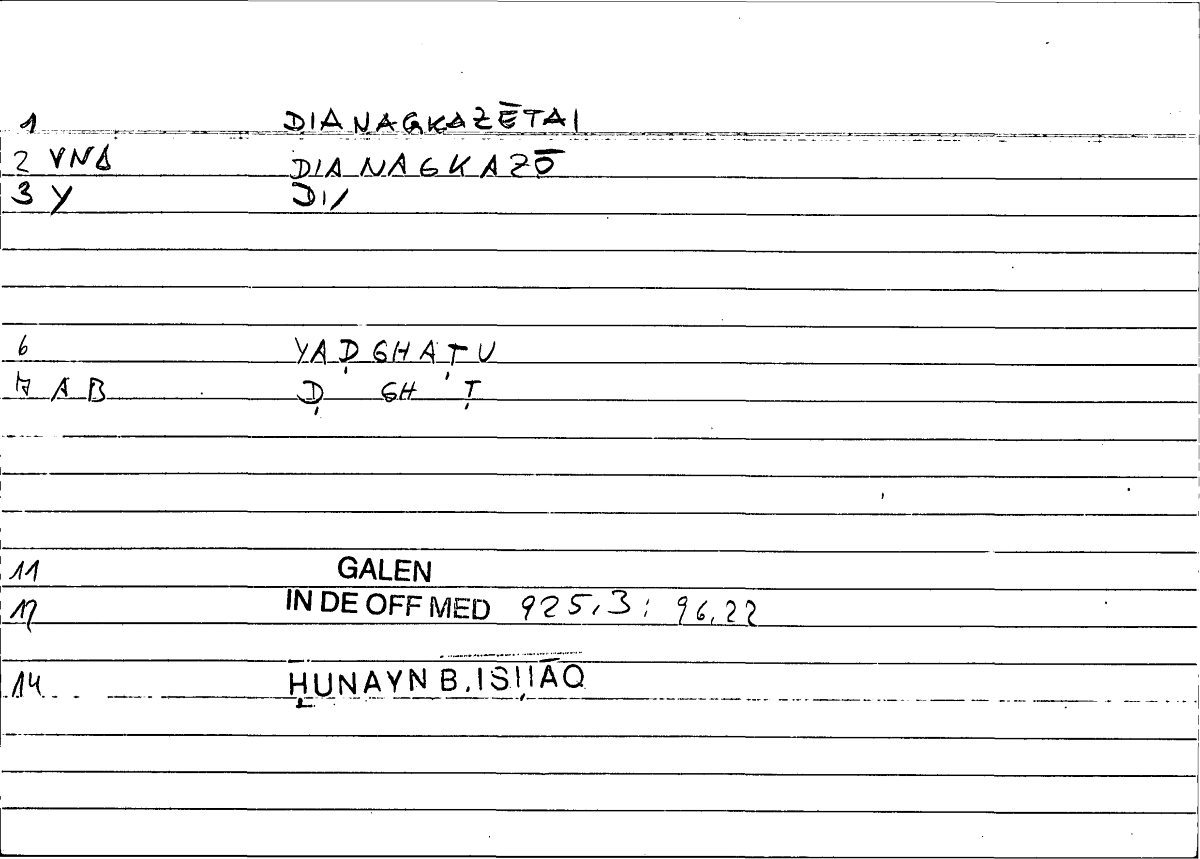 1 DIANAGKAZĒTAI
2 VNA DIANAGKAZŌ
3 Y DIY
6 YAḌGHAṬU
7 AB Ḍ GH Ṭ
11 GALEN
12 IN DE OFF MED 925,3 : 96,22
14 ḤUNAYN B.ISḤĀQ